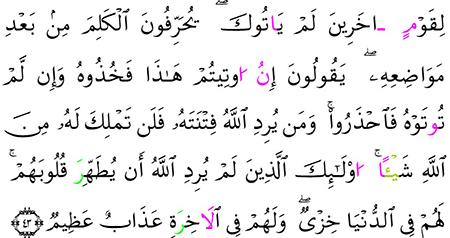 لِقَوْمٍ ـاخَرِينَ لَمْ يَاتُوكَۖ يُحَرِّفُونَ اَلْكَلِمَ مِنۢ بَعْدِ
مَوَاضِعِهِۦۖ يَقُولُونَ إِنُ اوتِيتُمْ هَٰذَا فَخُذُوهُ وَإِن لَّمْ
تُوتَوْهُ فَاحْذَرُواْۚ وَمَنْ يُرِدِ اللَّهُ فِتْنَتَهُۥ فَلَن تَمْلِكَ لَهُۥ مِنَ
اَللَّهِ شَيْـًٔاۚ اوْلَٰٓئِكَ اَلذِينَ لَمْ يُرِدِ اللَّهُ أَن يُطَهِّرَ قُلُوبَهُمْۚ
لَهُمْ فِي الدُّنْيَا خِزْيٌۖ وَلَهُمْ فِي الَاخِرَةِ عَذَابٌ عَظِيمٌ ٤٣